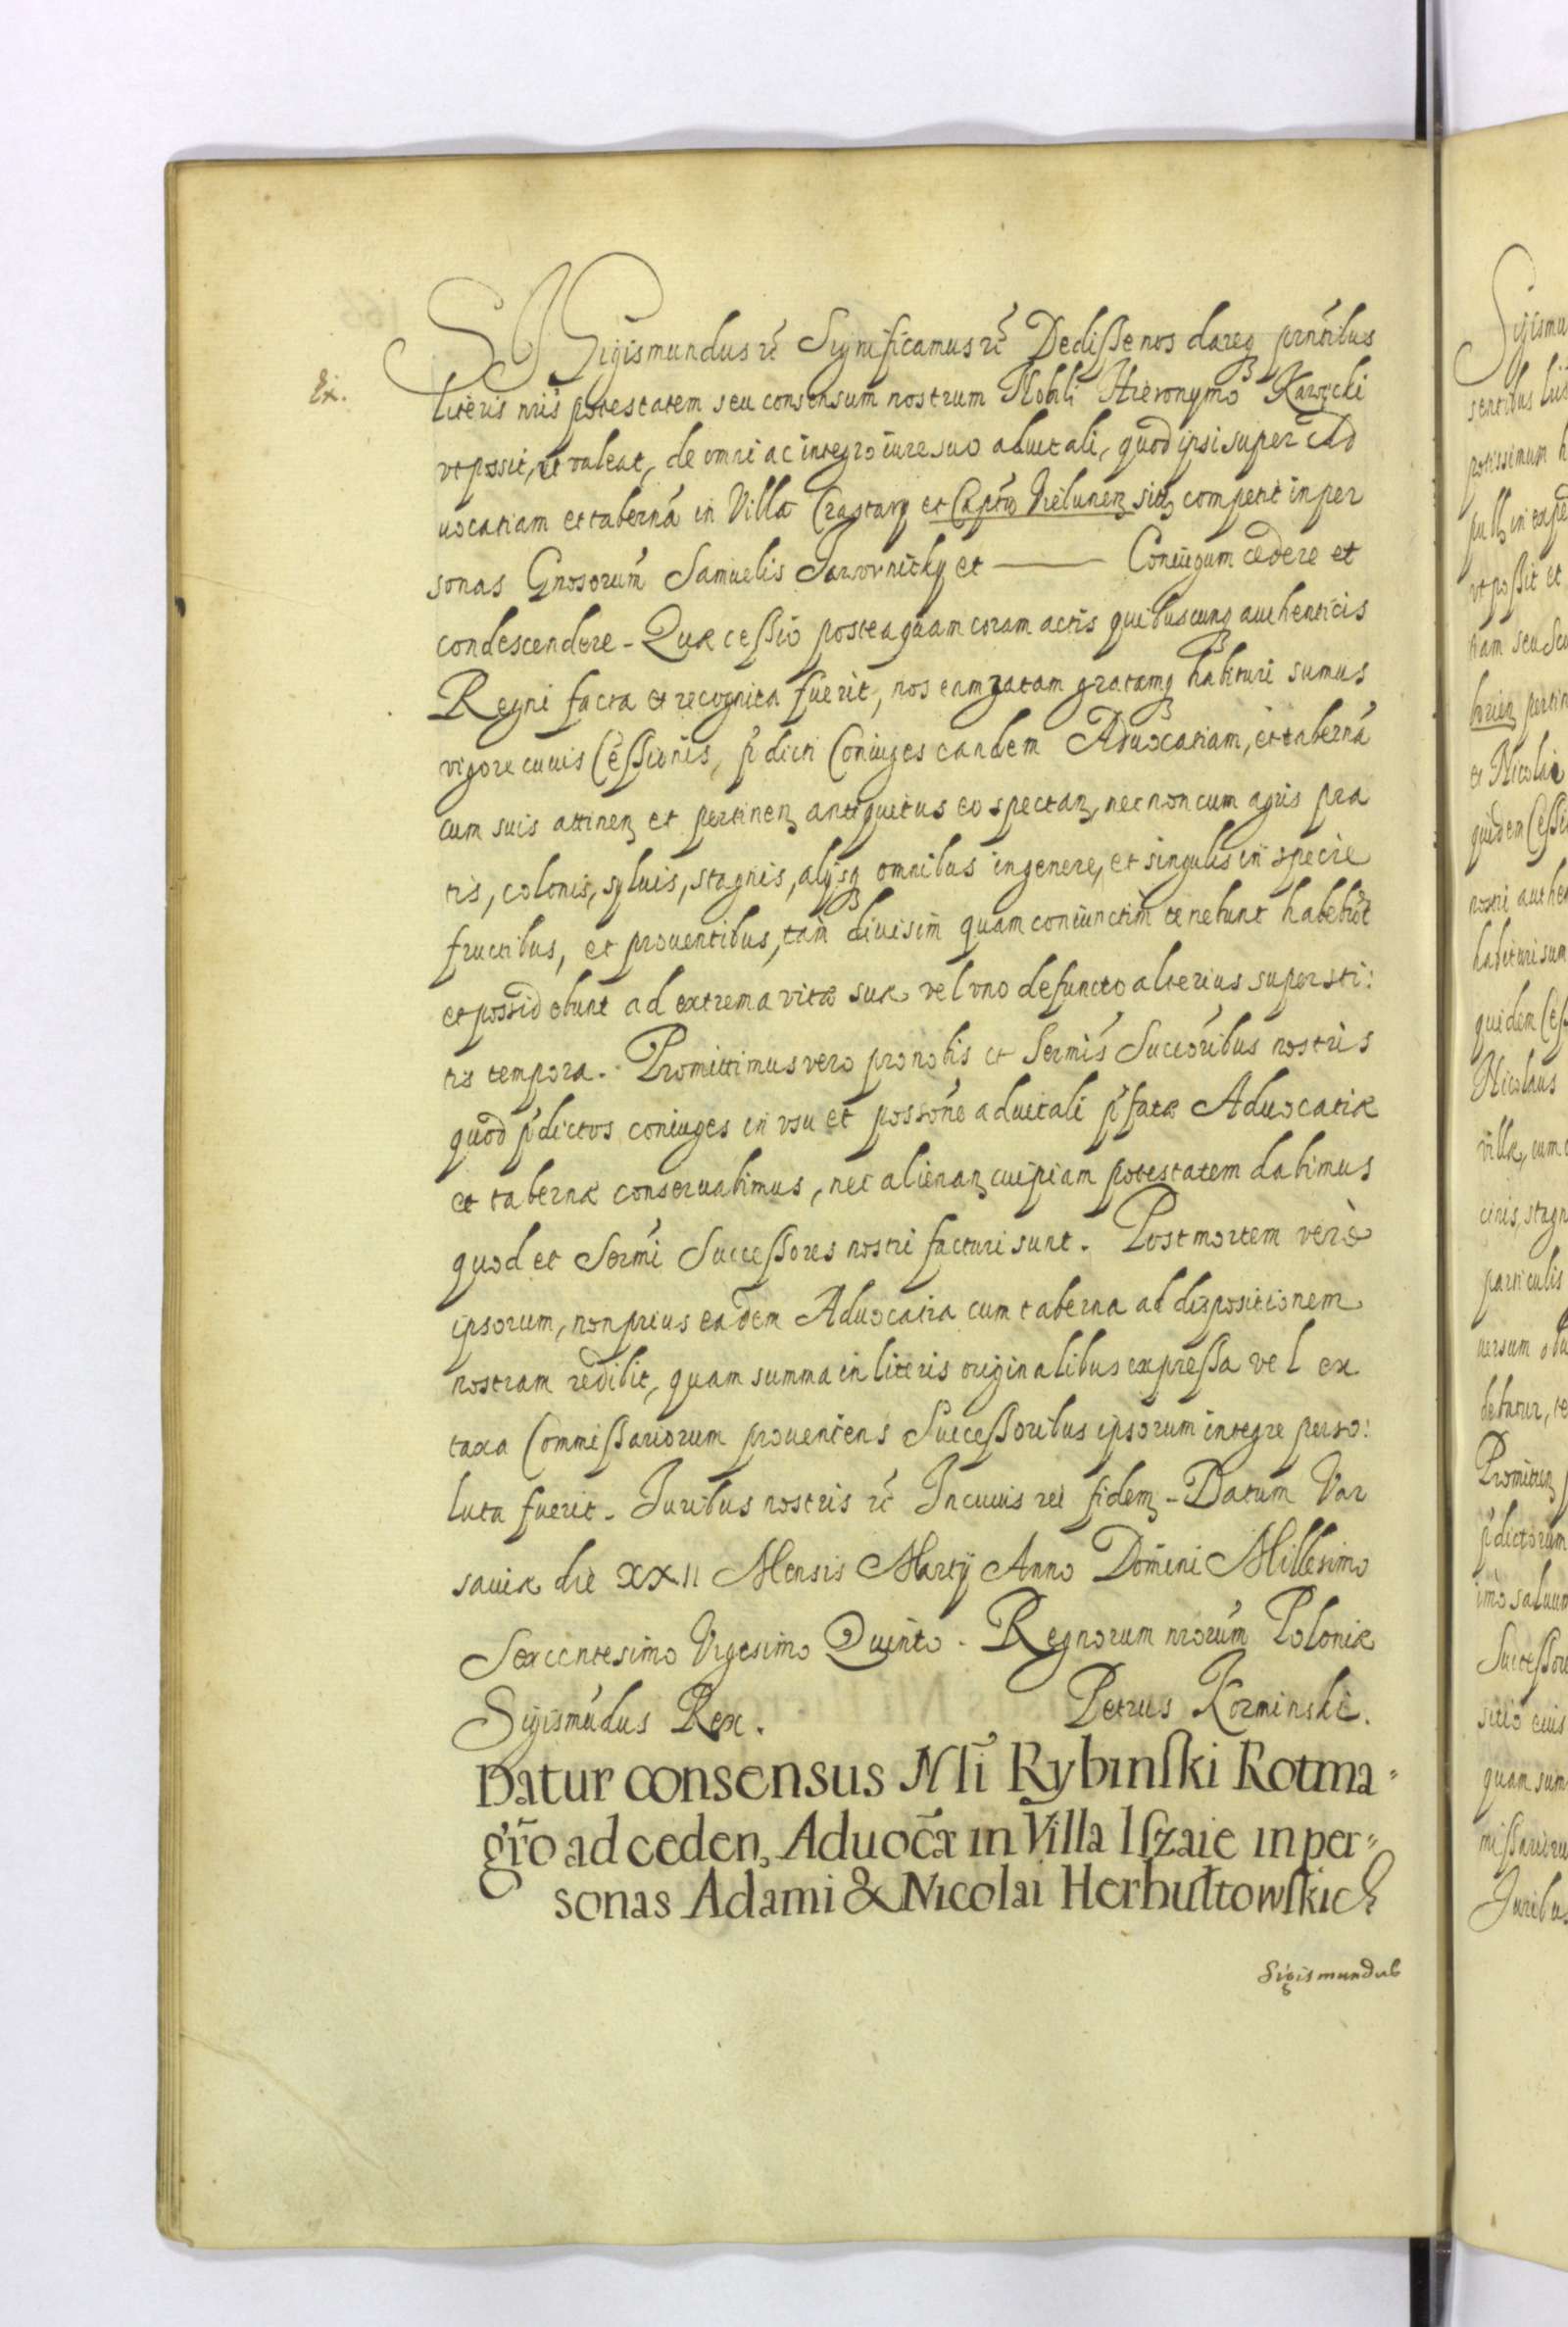 Ex.
Sigismundus rc̃ Significamus rc̃ Dedisse nos dareq prñtibus
literis nris potestatem seu consensum nostrum Nobili Hieronymo Karsęcki
vt possit, et valeat, de omni ac integro iure suo aduitali, quod ipsi super Ad
uocatiam et tabernã in Villa Crastawy et Captu Vielunen sitis competit in per
sonas Gnosorum Samuelis et ——— Coniugum cedere et
condescendere - Quæ cessio posteaquam coram actis quibuscunq authenticis
Regni facta et recognita fuerit, nos eam ratam gratamq habituri sumus
vigore cuius Cessionis, p̃dicti Coniuges eandem Aduocatiam, et tabernã
cum suis attinen et pertinen antiquitus eo spectan, nec non cum agris pra
tis, colonis, syluis, stagnis, alijsq omnibus in genere, et singulis in specie
fructibus, et prouentibus, tam diuisim quam coniunctim tenebunt habebũt
et possidebunt ad extrema vitæ suæ vel vno defuncto alterius supersti:
tis tempora. Promittimus vero pro nobis et Sermis Succoribus nostris
quod p̃dictos coniuges in vsu et possone aduitali p̃fatæ Aduocatiæ
et tabernæ conseruabimus, nec alienan cuipiam potestatem dabimus
quod et Sermi Successores nostri facturi sunt. Post mortem verò
ipsorum, non prius eadem Aduocatia cum taberna ad dispositionem
nostram redibit, quam summa in literis originalibus expressa vel ex
taxa Commissariorum proueniens Successoribus ipsorum integre perso:
luta fuerit. Iuribus nostris rc̃ In cuius rei fidem - Datum Var
sauiæ die XXII Mensis Martij Anno Domini Millesimo
Sexcentesimo Vigesimo Quinto. Regnorum nrorum Poloniæ
Sigismũdus Rex. Petrus Kozminski.
Datur consensus Nli Rybinski Rotma-
gro ad ceden, Aduocæ in Villa Iszaie in per-
sonas Adami & Nicolai Herbułtowskich
Sigismundus